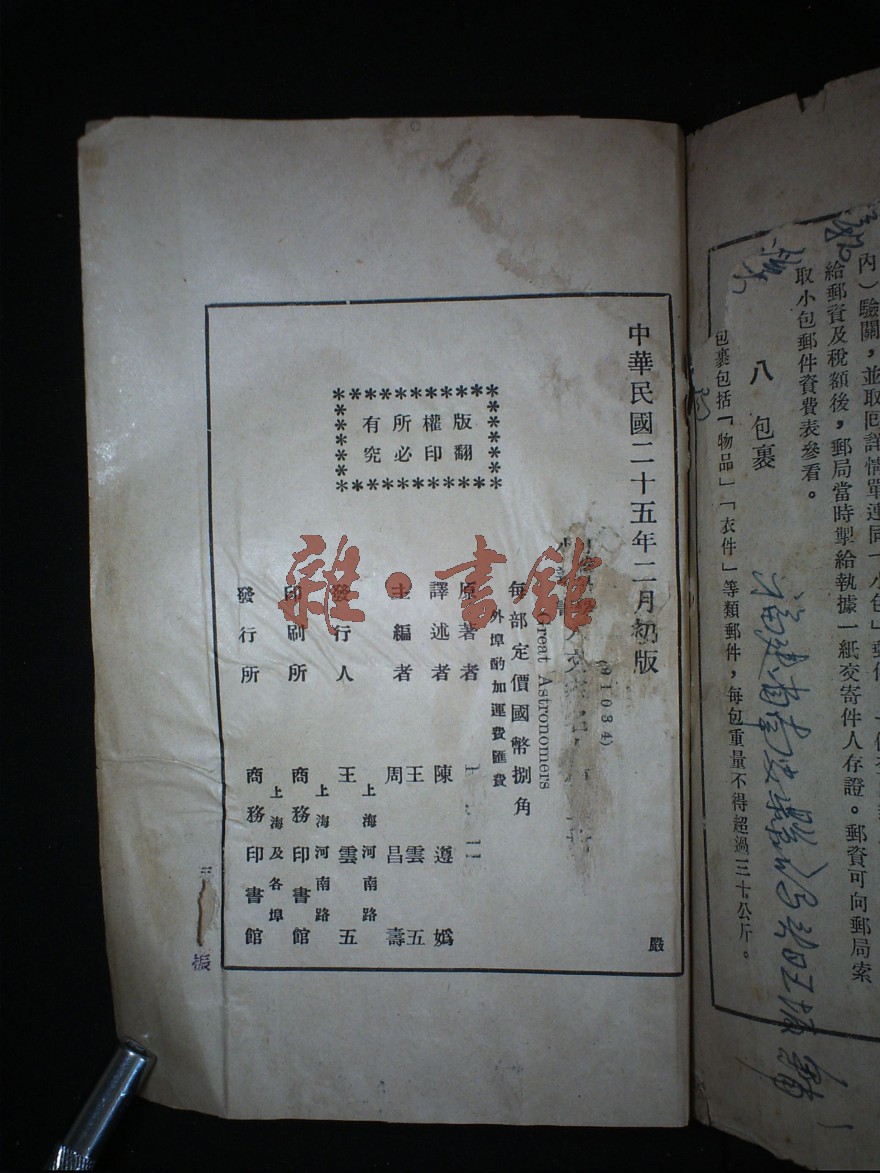 內）驗關，並取回詳情單連同「小包」郵件
給郵資及稅額後，郵局當時掣給執據一紙交寄件人存證。郵資可向郵局索
取小包郵件資費表參看。
八　包裹
包裹包括「物品」「衣件」等類郵件，每包重量不得超過三十公斤。
中華民國二十五年二月初版
嚴
(91034)
Great Astronomers
每部定價國幣捌角
外埠酌加運費匯費
原著者
譯述者　陳遵媯
主編者　王雲五
周昌壽
發行人　王雲五
上海河南路
印刷所　商務印書館
上海及各埠
發行所　商務印書館
版權所有
翻印必究
雜·書館
振